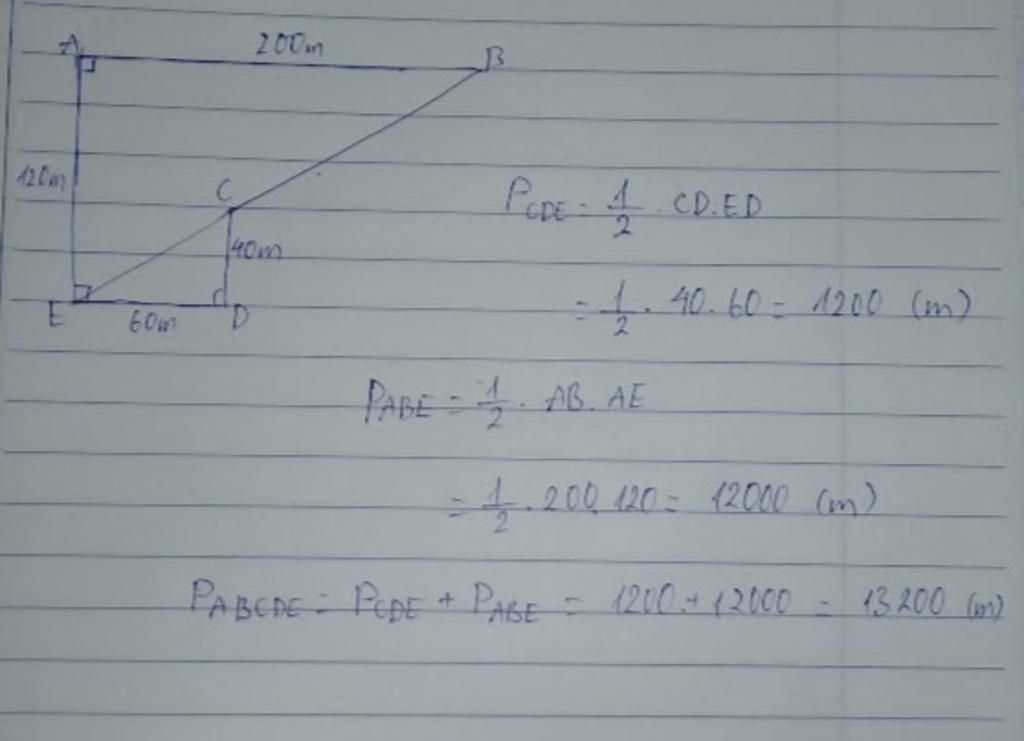 A 200m B
120m
C
40m
E 60m D
P_CDE = 1/2 . CD.ED
= 1/2 . 40.60 = 1200 (m)
P_ABE = 1/2 . AB. AE
= 1/2 . 200.120 = 12000 (m)
P_ABCDE = P_CDE + P_ABE = 1200 + 12000 = 13200 (m)